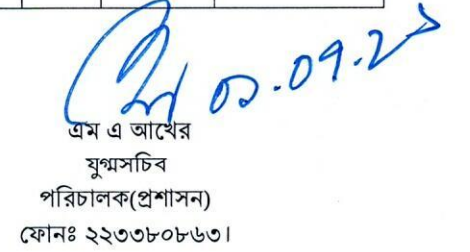 ০১.০৭.২১
এম এ আখের
যুগ্মসচিব
পরিচালক(প্রশাসন)
ফোনঃ ২২৩৩৮০৮৬৩।